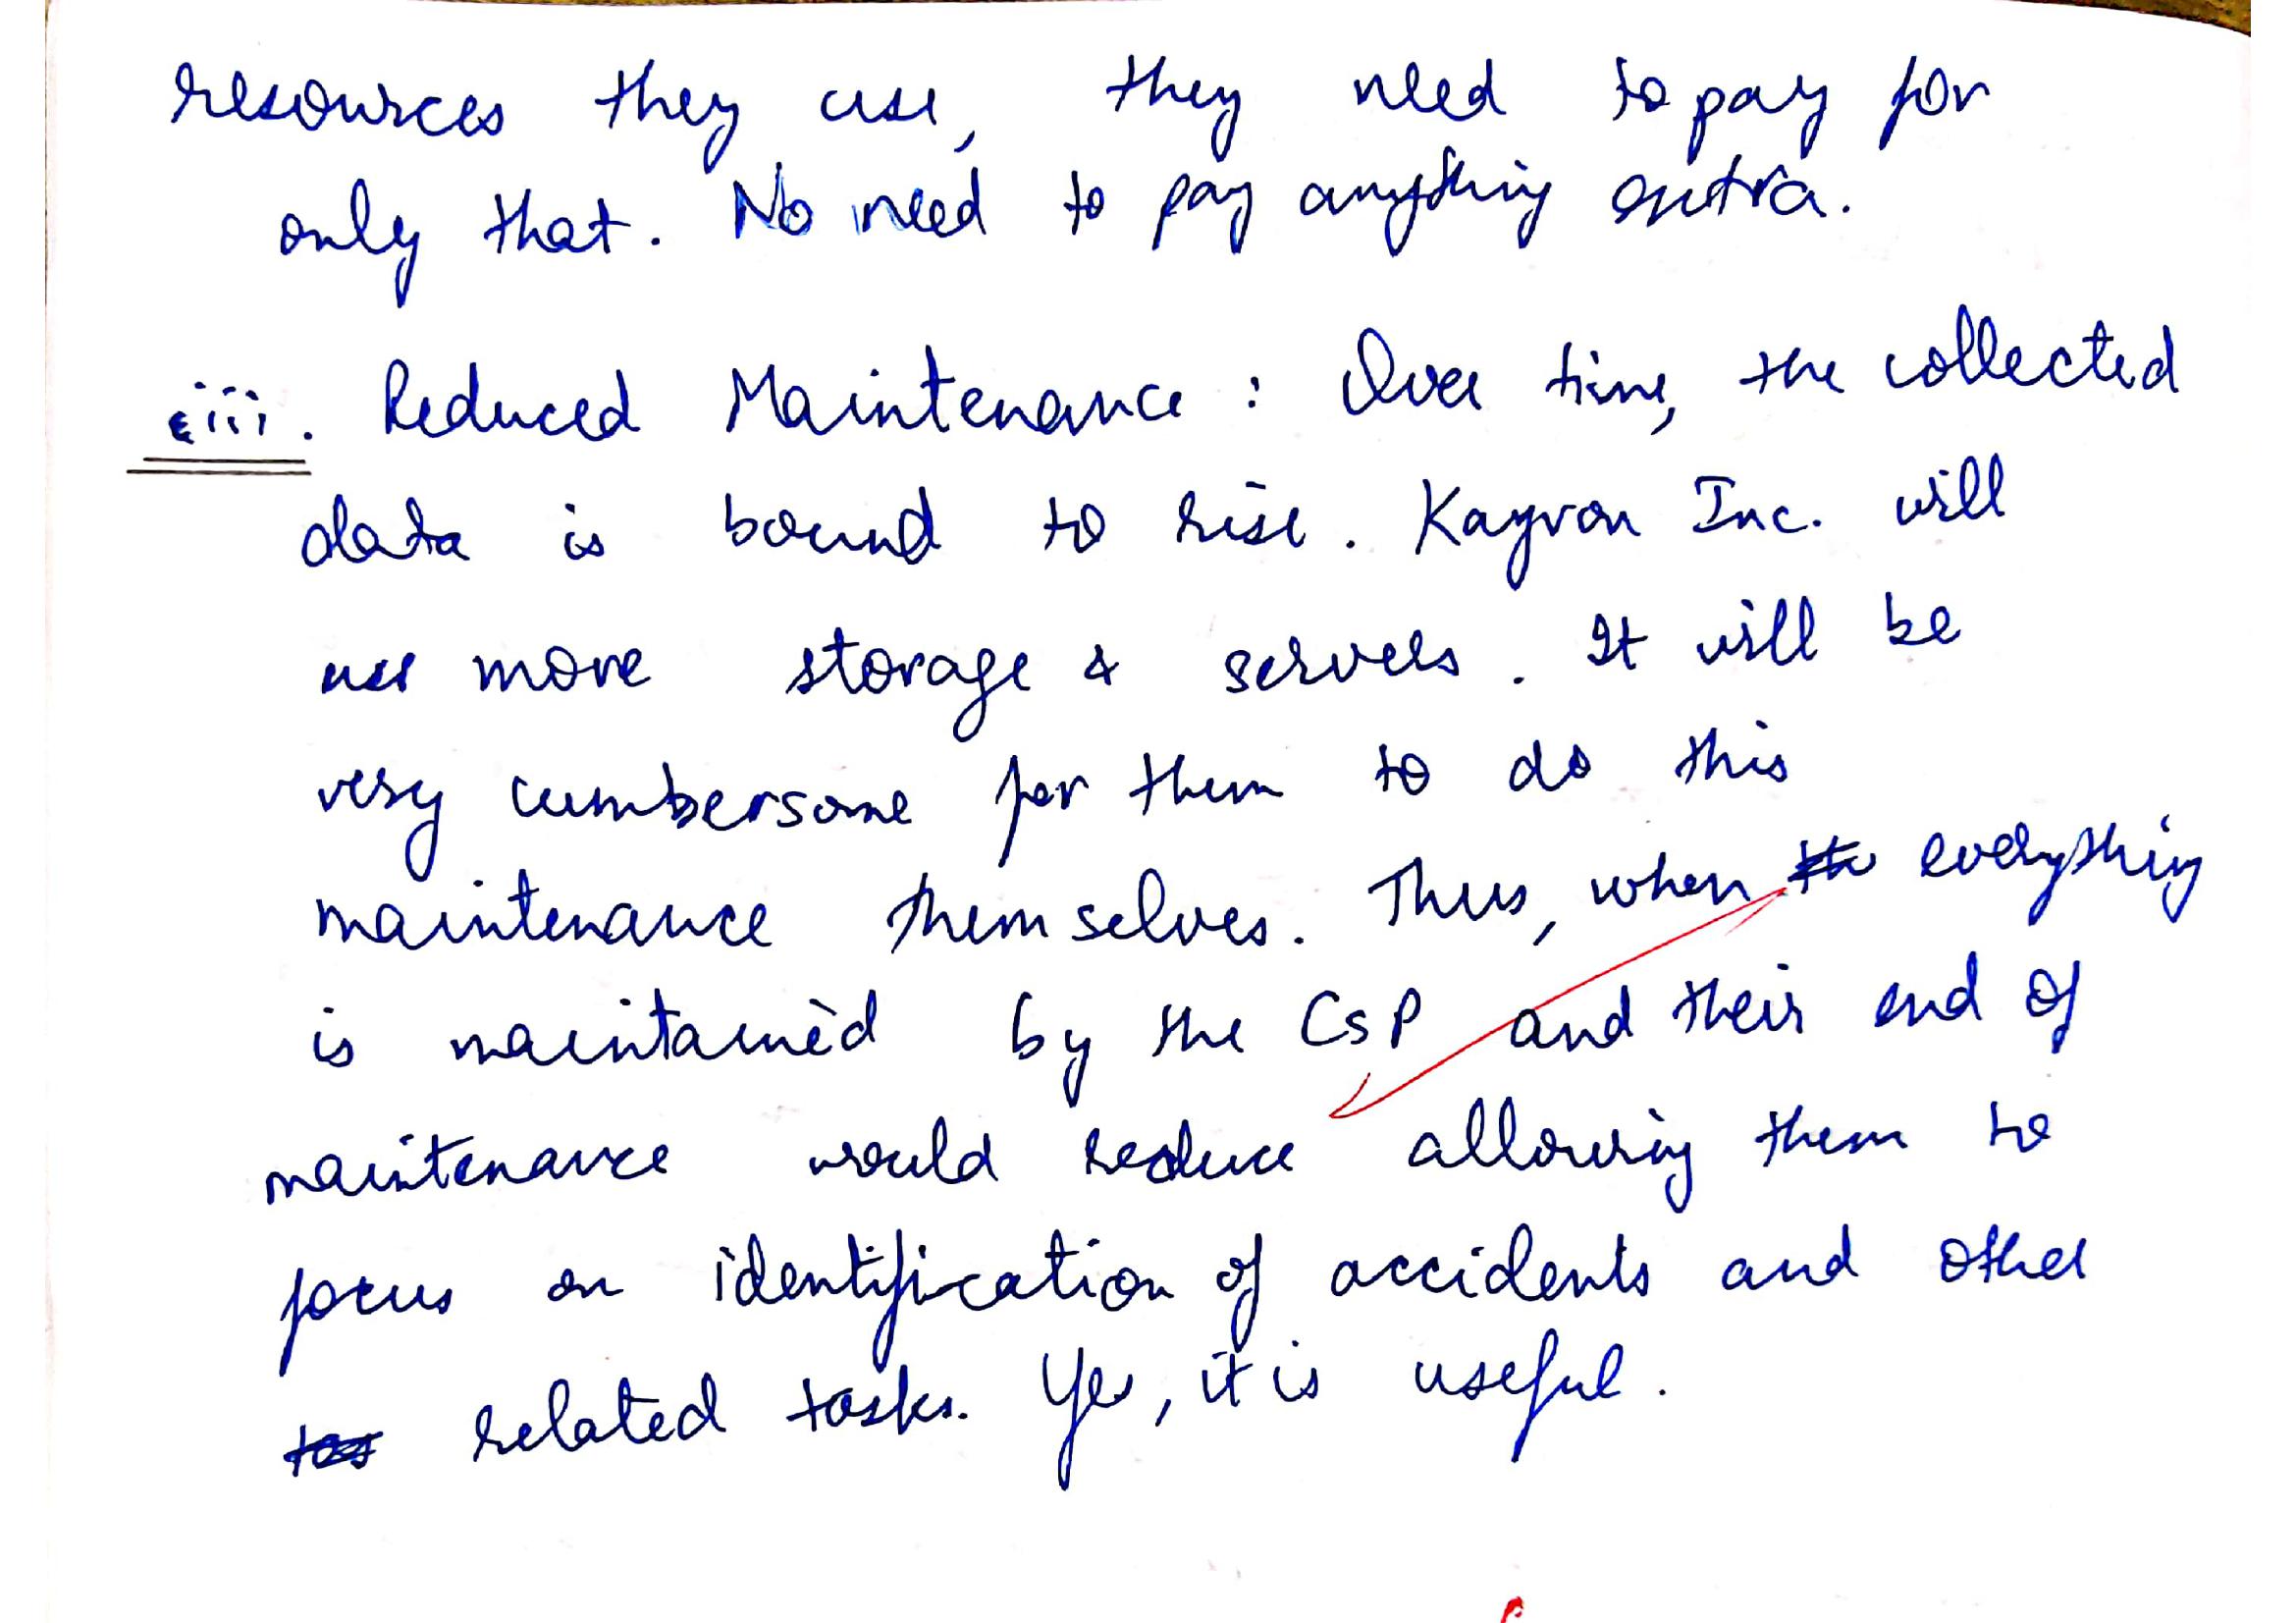 resources they use, they need to pay for
only that. No need to pay anything extra.
iii. Reduced Maintenance : Over time, the collected
data is bound to rise. Kayvon Inc. will
use more storage & servers. It will be
very cumbersome for them to do this
maintenance themselves. Thus, when everything
is maintained by the CSP and their end of
maintenance would reduce allowing them to
focus on identification of accidents and other
related tasks. Yes, it is useful.